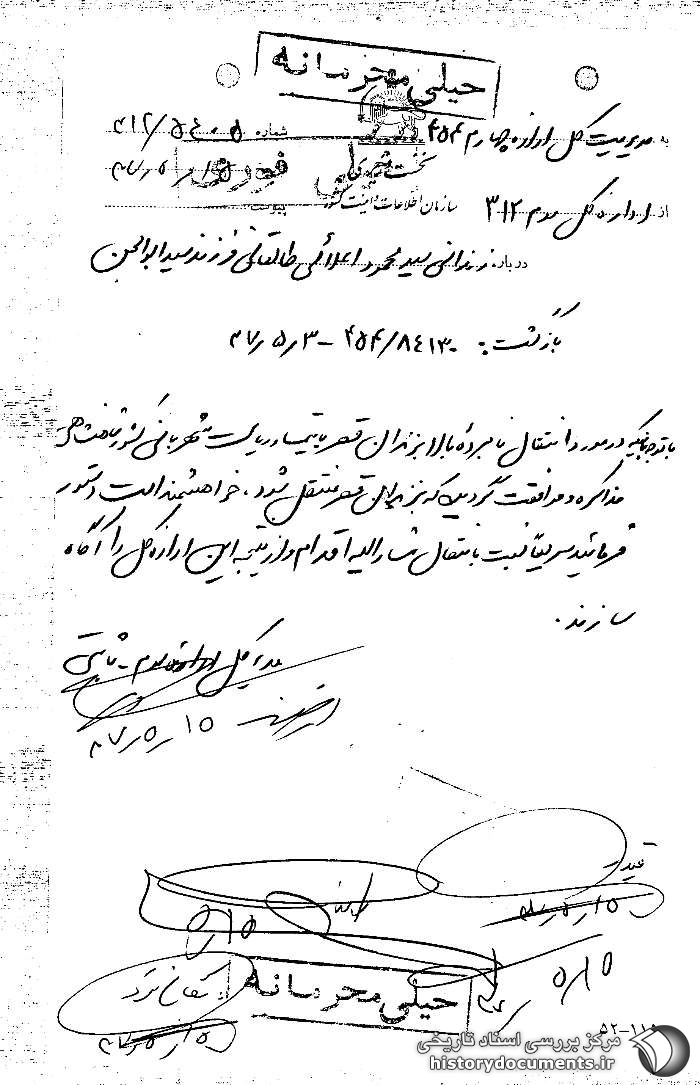 خیلی محرمانه
به مدیریت کل اداره چهارم ۴۵۴
شماره ۳۱۲/۵۴۰۰۵
نخست وزیری
فوری
۱۵/۵/۴۷
سازمان اطلاعات و امنیت کشور
پیوست
از اداره کل سوم ۳۱۲
درباره زندانی سید محمود اعلائی طالقانی فرزند سید ابوالحسن
بازگشت به ۴۵۴/۸۴۱۳۰ - ۳/۵/۴۷
با توجه باینکه در مورد انتقال نامبرده بالا بزندان قصر با تیمسار ریاست شهربانی کشور
مذاکره و موافقت گردیده که بزندان قصر منتقل شود، خواهشمند است دستور
فرمائید سریعاً نسبت بانتقال مشارالیه اقدام و از نتیجه این اداره کل را آگاه
سازند.
مدیر کل اداره سوم - ثابتی
۱۵/۵/۴۷
۱۵/۵/۴۷
۱۵/۵
۱۵/۵
۴۷
خیلی محرمانه
۱۵/۵/۴۷
مرکز بررسی اسناد تاریخی
historydocuments.ir